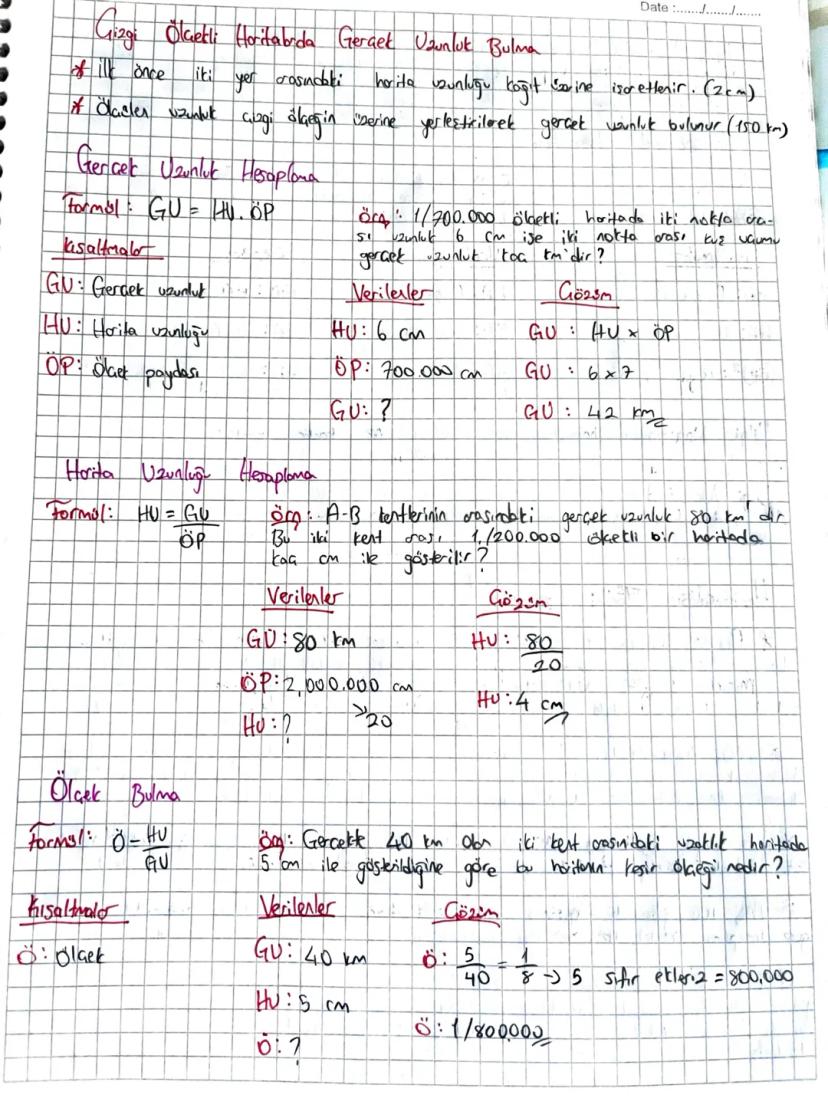 Date :......./......./.......
Çizgi Ölçekli Haritalarda Gerçek Uzunluk Bulma
* İlk önce iki yer arasındaki harita uzunluğu kağıt üzerine işaretlenir. (2cm)
* Ölçülen uzunluk çizgi ölçeğin üzerine yerleştirilerek gerçek uzunluk bulunur (150 km)
Gerçek Uzunluk Hesaplama
Formül: GU = HU . ÖP
Kısaltmalar
GU: Gerçek uzunluk
HU: Harita uzunluğu
ÖP: Ölçek paydası
Örn: 1/700.000 ölçekli haritada iki nokta ara-
sı uzunluk 6 cm ise iki nokta arası kuş uçumu
gerçek uzunluk kaç km'dir?
Verilenler
HU: 6 cm
ÖP: 700.000 cm
GU: ?
Çözüm
GU : HU x ÖP
GU : 6 x 7
GU : 42 km
Harita Uzunluğu Hesaplama
Formül: HU = GU
ÖP
Örn: A-B kentlerinin arasındaki gerçek uzunluk 80 km' dir
Bu iki kent arası 1/200.000 ölçekli bir haritada
kaç cm ile gösterilir?
Verilenler
GU: 80 km
ÖP: 2,000.000 cm
20
HU: ?
Çözüm
HU: 80
20
HU: 4 cm
Ölçek Bulma
Formül: Ö = HU
GU
Kısaltmalar
Ö: Ölçek
Örn: Gerçekte 40 km olan iki kent arasındaki uzaklık haritada
5 cm ile gösterildiğine göre bu haritanın kesir ölçeği nedir?
Verilenler
GU: 40 km
HU: 5 cm
Ö: ?
Çözüm
Ö: 5/40 = 1/8 → 5 sıfır ekleriz = 800,000
Ö: 1/800000